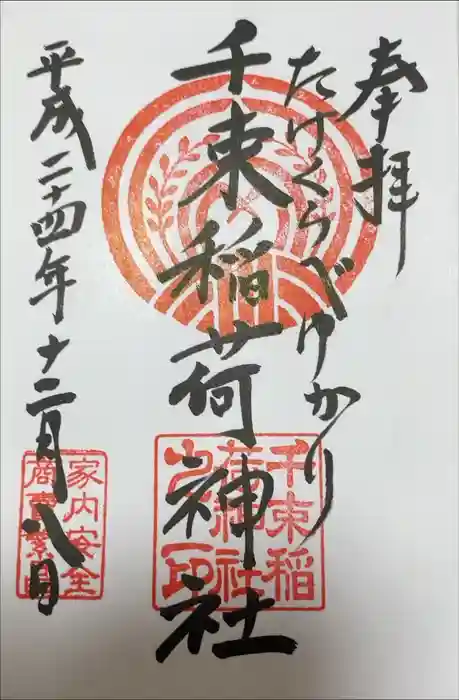 奉拝
たけくらべゆかり
千束稲荷神社
平成二十四年十二月八日
千束稲
荷神社
之印
家内安全
商売繁昌